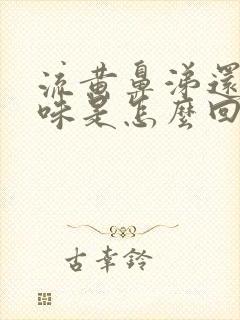 流黄鼻涕還
味是怎麼回
古幸鈴